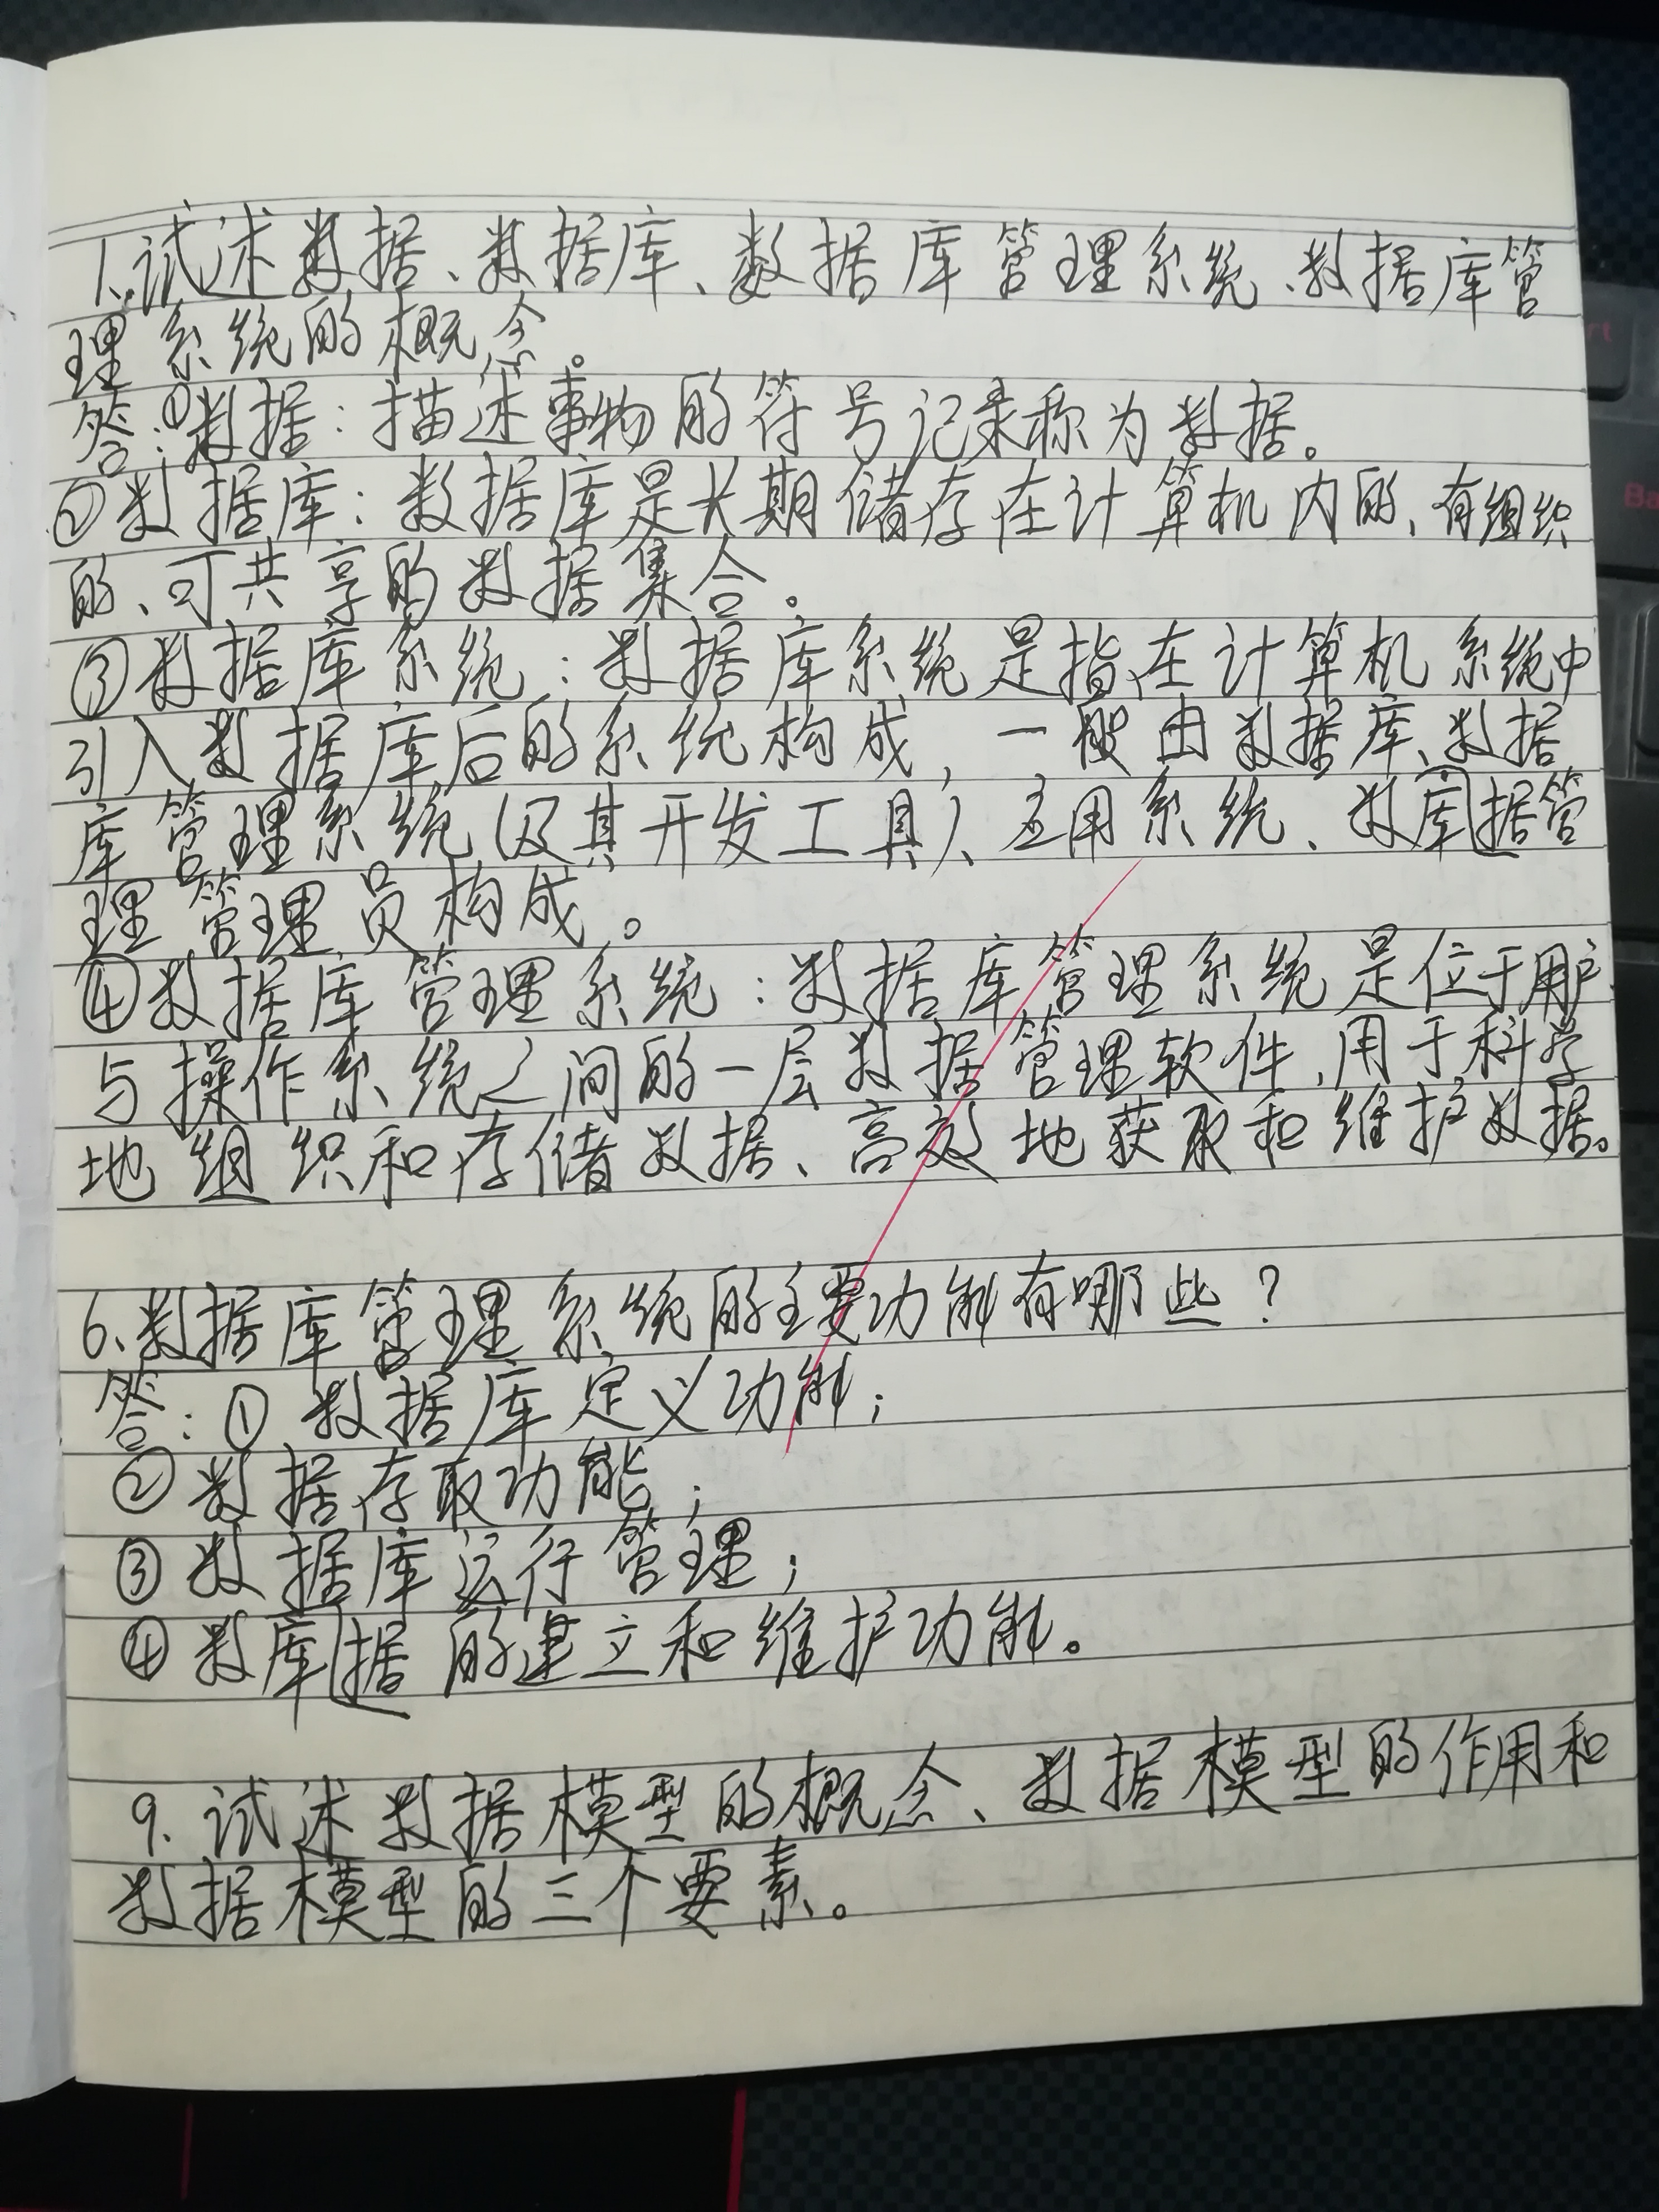 1.试述数据、数据库、数据库管理系统、数据库管
理系统的概念。
答:①数据:描述事物的符号记录称为数据。
②数据库:数据库是长期储存在计算机内的、有组织
的、可共享的数据集合。
③数据库系统:数据库系统是指在计算机系统中
引入数据库后的系统构成,一般由数据库、数据
库管理系统(及其开发工具)、应用系统、数库据管
理管理员构成。
④数据库管理系统:数据库管理系统是位于用户
与操作系统之间的一层数据管理软件,用于科学
地组织和存储数据、高效地获取和维护数据。
6.数据库管理系统的主要功能有哪些?
答:①数据库定义功能;
②数据存取功能;
③数据库运行管理;
④数库据的建立和维护功能。
9.试述数据模型的概念、数据模型的作用和
数据模型的三个要素。